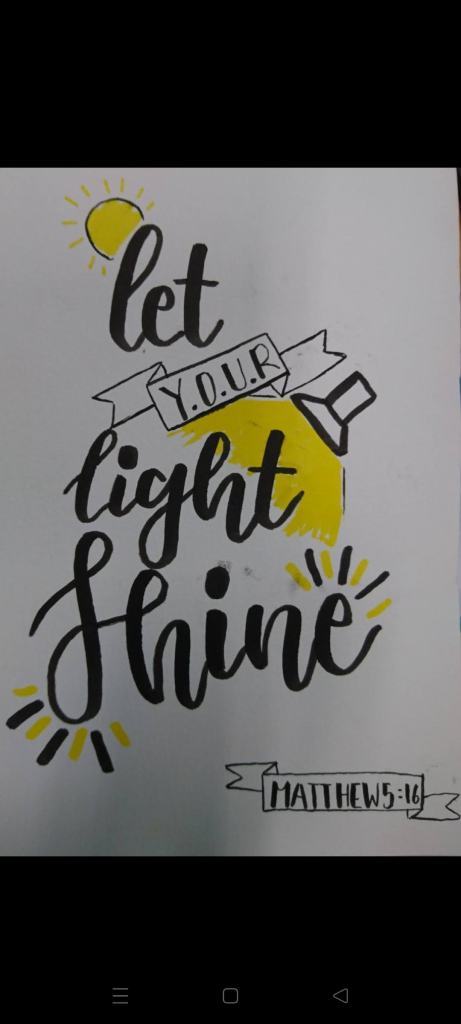 let
Y.O.U.R
light
Shine
MATTHEW 5:16